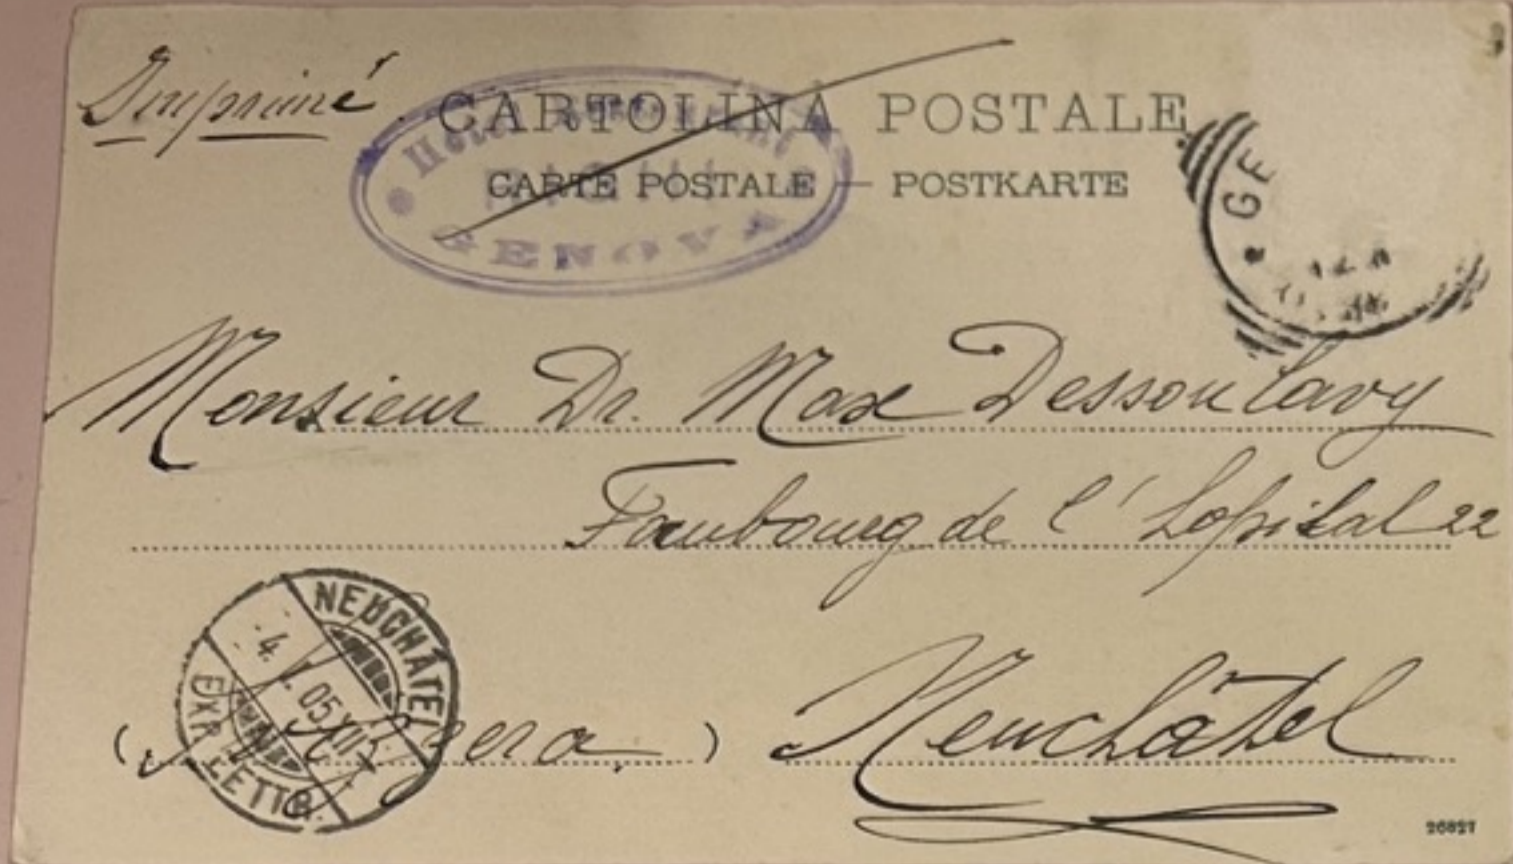 Imprimé.
CARTOLINA POSTALE
CARTE POSTALE — POSTKARTE
Hôtel
GENOVA
GE
Monsieur Dr. Max Dessoulavy
Faubourg de l'Hopital 22
NEUCHÂTEL
4. 05
EXP. LETTR.
(Svizzera.) Neuchâtel
26827